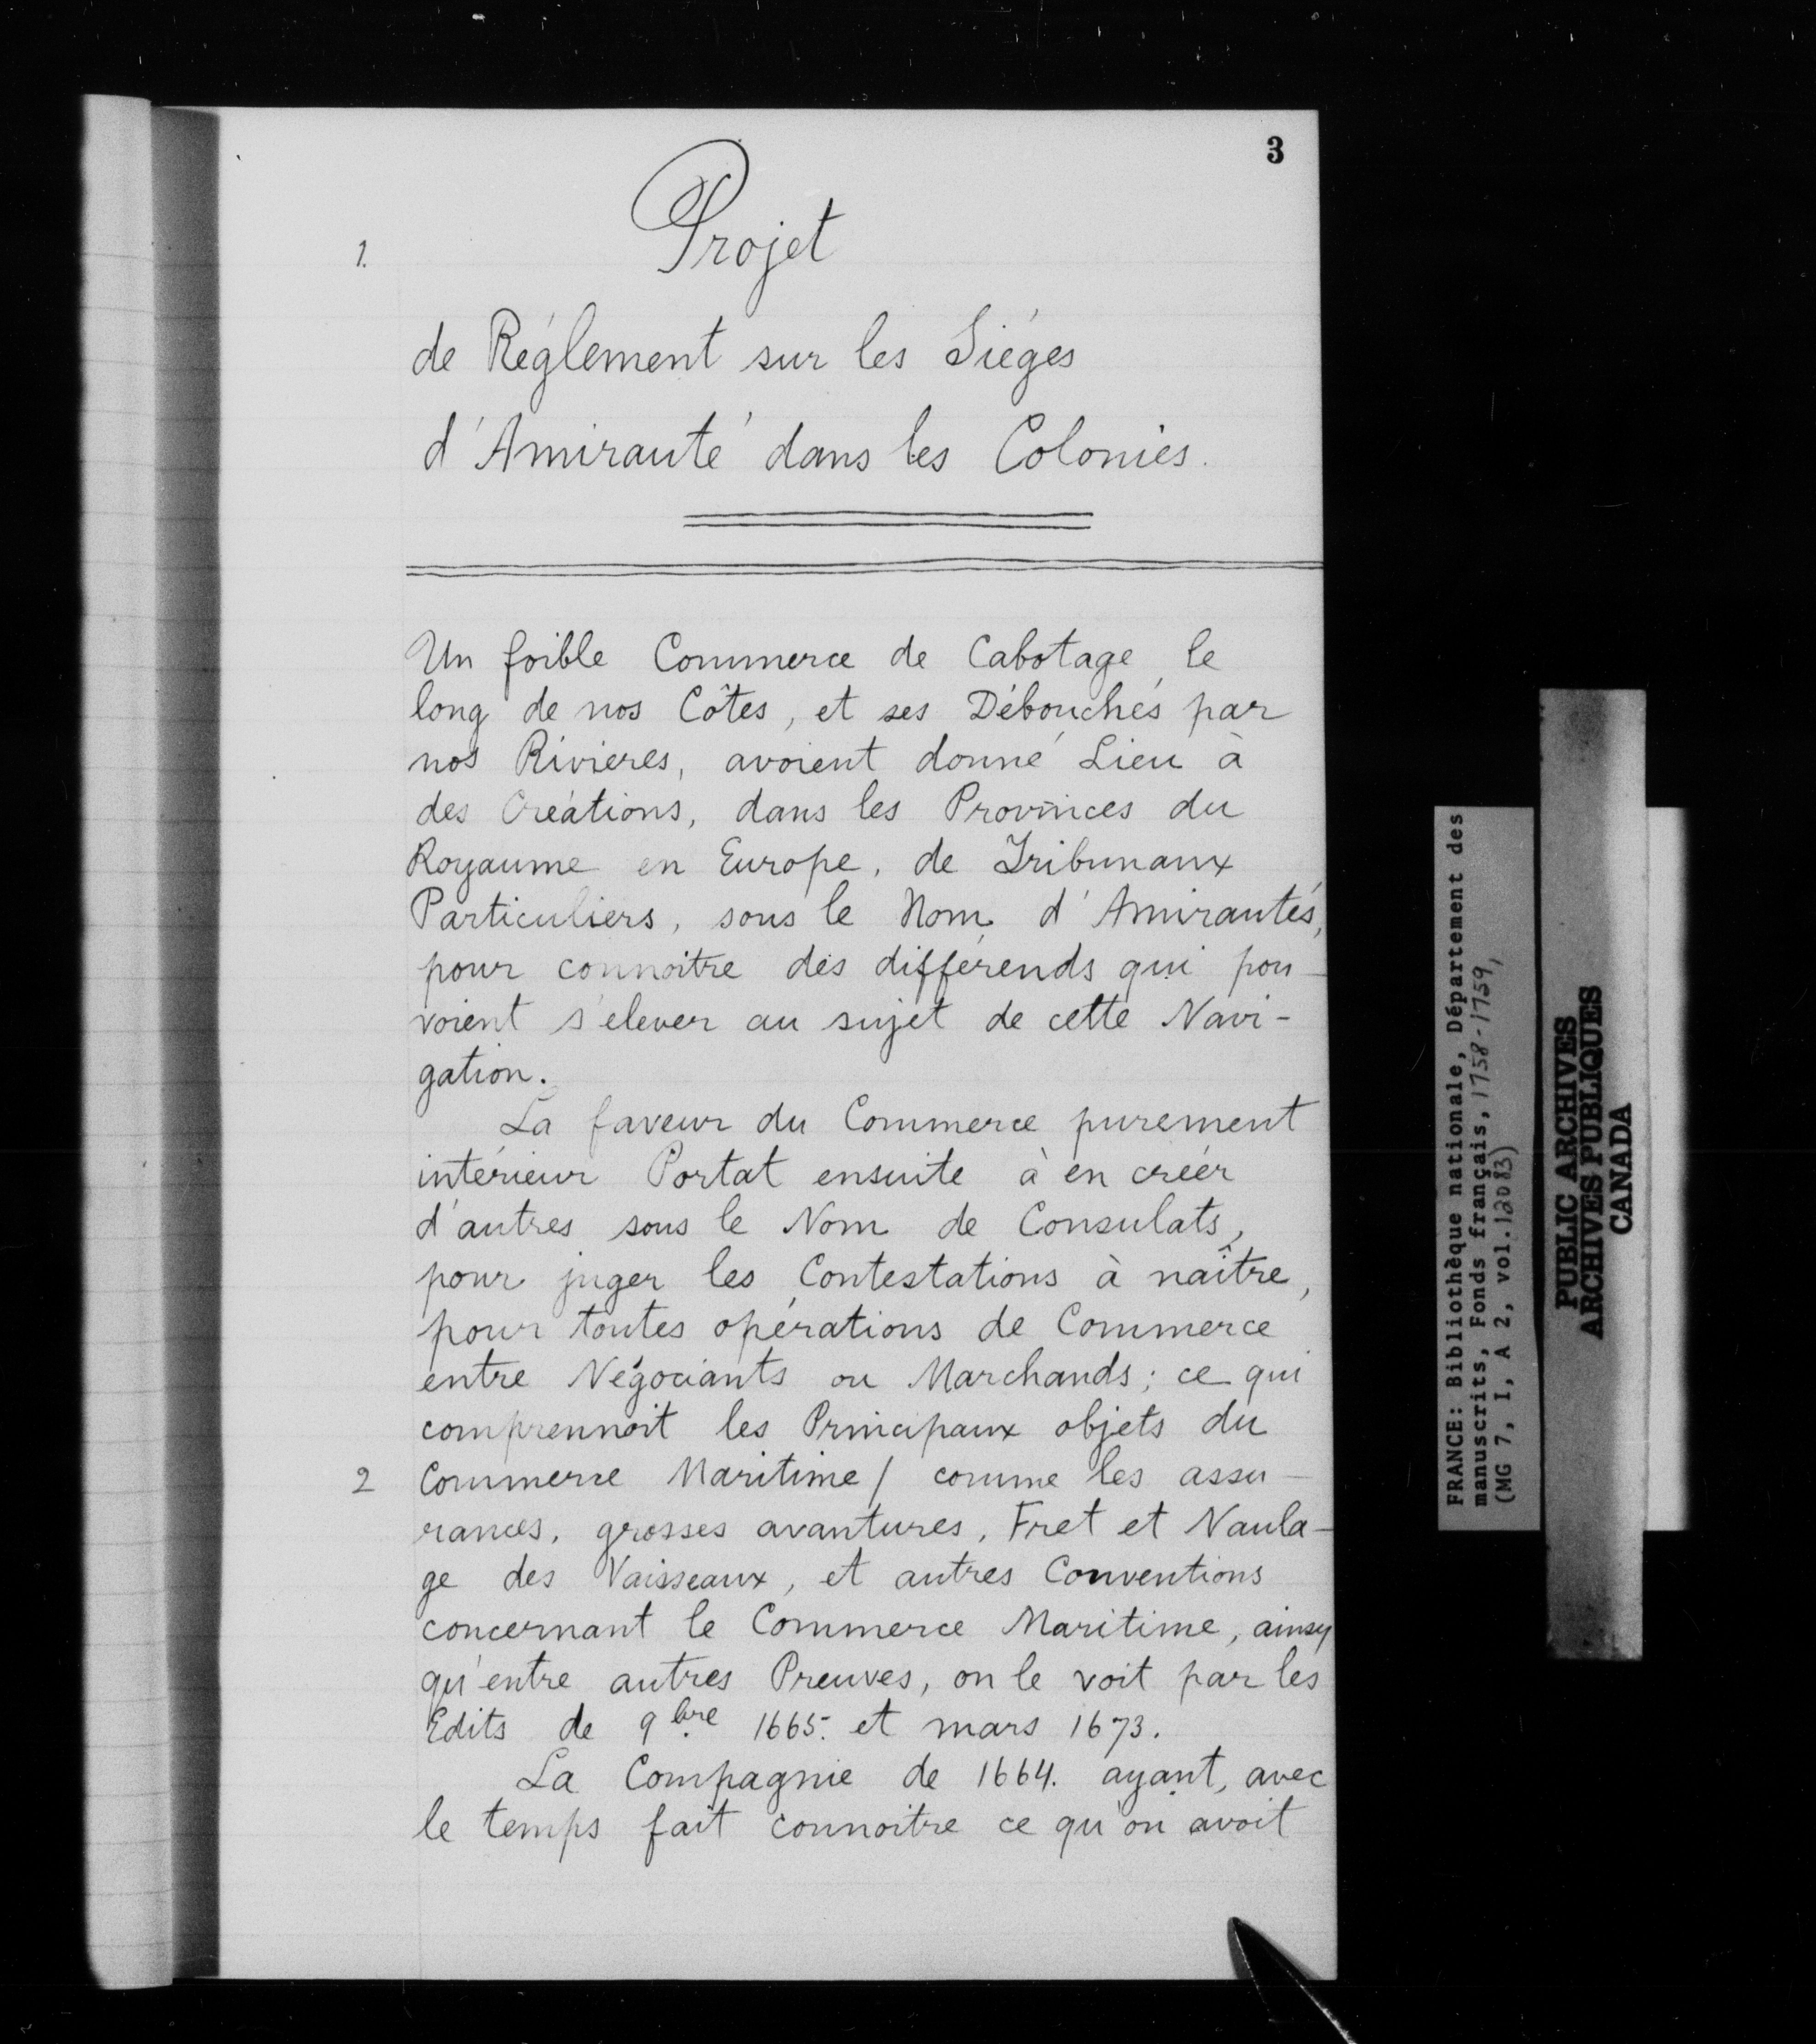 3
1.
Projet
de Réglement sur les Siéges
d'Amirauté dans les Colonies.
Un foible Commerce de Cabotage le
long de nos Côtes, et ses Débouchés par
nos Rivieres, avoient donné Lieu à
des Créations, dans les Provinces du
Royaume en Europe, de Tribunaux
Particuliers, sous le Nom d'Amirautés,
pour connoitre des différends qui pou-
voient s'elever au sujet de cette Navi-
gation.
La faveur du Commerce purement
intérieur Portat ensuite à en créer
d'autres sous le Nom de Consulats,
pour juger les Contestations à naître,
pour toutes opérations de Commerce
entre Négociants ou Marchands; ce qui
comprennoit les Principaux objets du
2
Commerce Maritime / comme les assu-
rances, grosses avantures, Fret et Naula-
ge des Vaisseaux, et autres Conventions
concernant le Commerce Maritime, ainsy
qu'entre autres Preuves, on le voit par les
Edits de 9bre 1665. et mars 1673.
La Compagnie de 1664. ayant, avec
le temps fait connoitre ce qu'on avoit
FRANCE: Bibliothèque nationale, Département des
manuscrits, Fonds français, 1758-1759,
(MG 7, I, A 2, vol. 12083)
PUBLIC ARCHIVES
ARCHIVES PUBLIQUES
CANADA